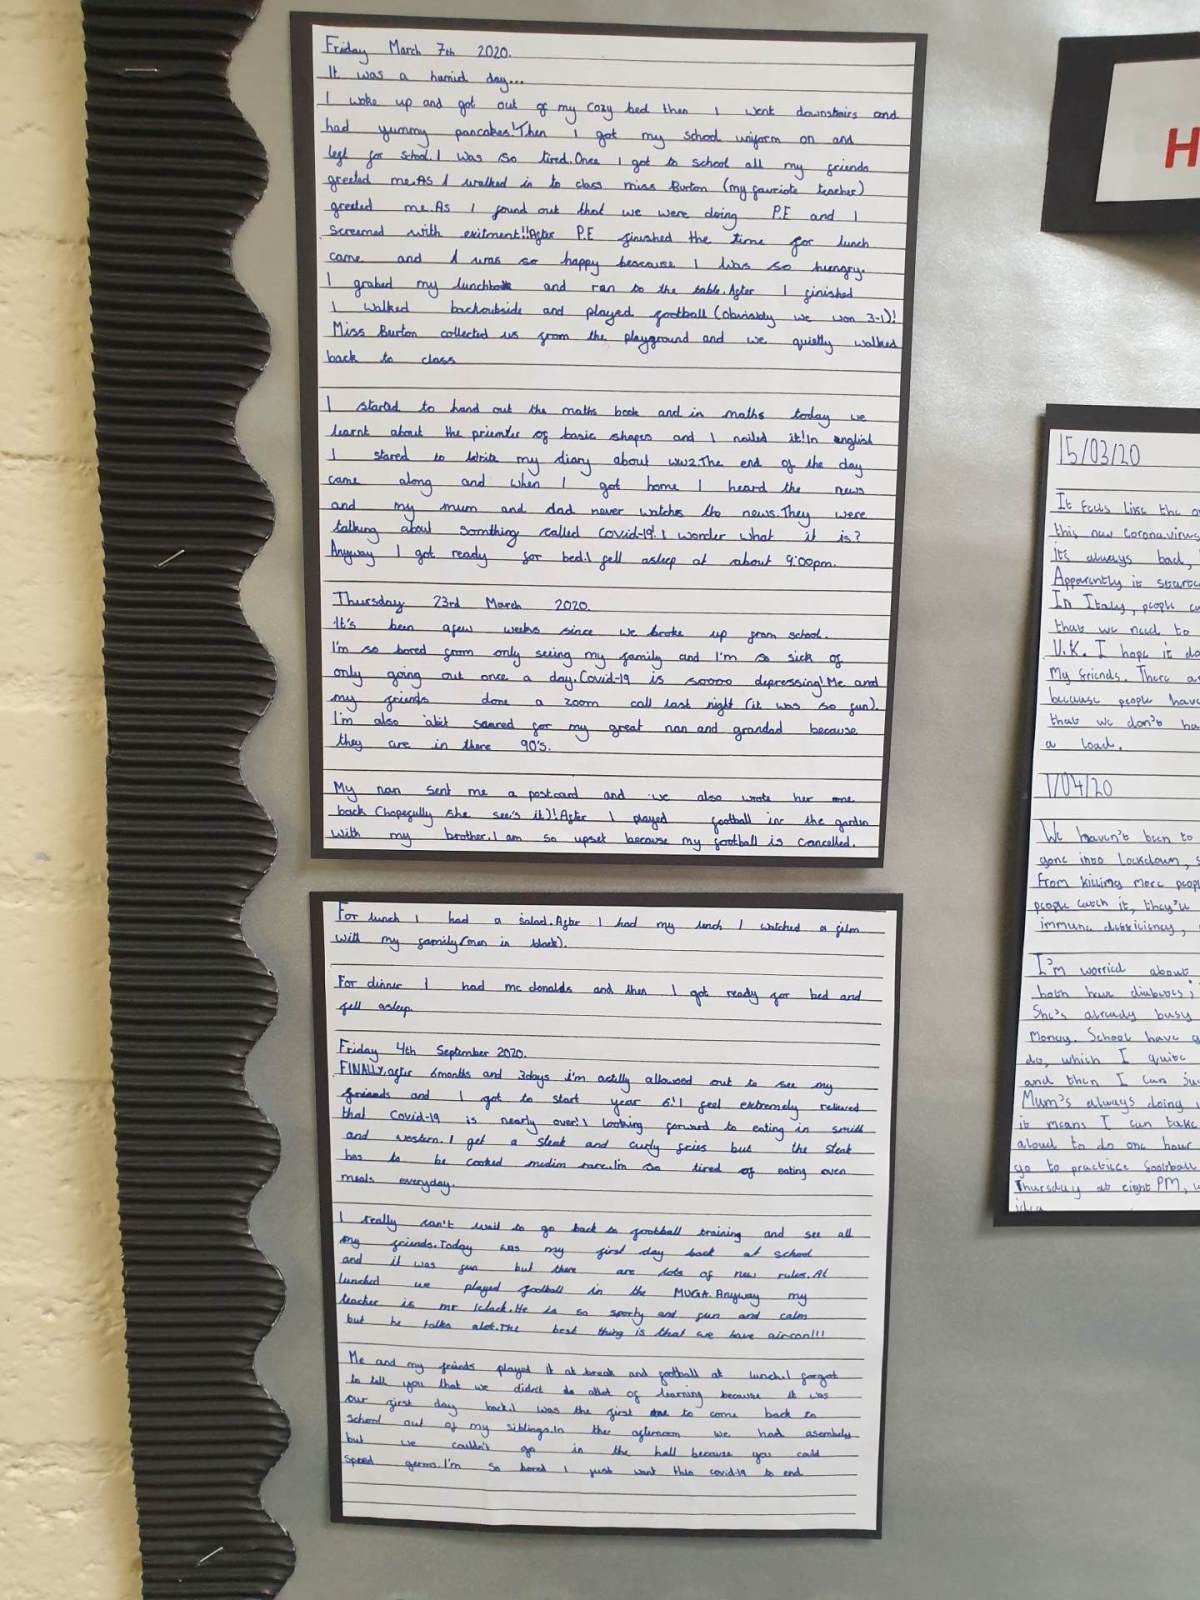 Friday March 7th 2020.
It was a humid day...
I woke up and got out of my cozy bed then I went downstairs and
had yummy pancakes! Then I got my school uniform on and
left for school. I was so tired. Once I got to school all my friends
greeted me. As I walked in to class miss Burton (my favriote teacher)
greeted me. As I found out that we were doing P.E and I
screamed with exitment!! After P.E finished the time for lunch
came and I was so happy beacause I was so hungry.
I grabed my lunchbox and ran to the table. After I finished
I walked backoutside and played football (obviously we won 3-1)!
Miss Burton collected us from the playground and we quietly walked
back to class
I started to hand out the maths book and in maths today we
learnt about the of basic shapes and I nailed it! In english
I stared to write my diary about ww2. The end of the day
came along and when I got home I heard the news
and my mum and dad never watches the news. They were
talking about somthing called Covid-19! I wonder what it is?
Anyway I got ready for bed. I fell asleep at about 9:00pm.
Thursday 23rd March 2020.
It's been afew weeks since we broke up from school.
I'm so bored from only seeing my family and I'm so sick of
only going out once a day. Covid-19 is soooo depressing! Me and
my friends done a zoom call last night (it was so fun).
I'm also abit scared for my great nan and grandad because
they are in there 90's.
My nan sent me a postcard and we also wrote her one
back (hopefully she see's it)! After I played football in the garden
with my brother. I am so upset because my football is cancelled.
For lunch I had a salad. After I had my lunch I watched a film
with my family (men in black).
For dinner I had mc donalds and then I got ready for bed and
fell asleep.
Friday 4th September 2020.
FINALLY. after 6months and 3days i'm actilly allowed out to see my
friends and I got to start year 6! I feel extremely relieved
that Covid-19 is nearly over! I looking forward to eating in smith
and western. I get a steak and curly fries but the steak
has to be cooked medim rare. I'm so tired of eating oven
meals everyday.
I really can't wait to go back to football training and see all
my friends. Today was my first day back at school
and it was fun but there are lots of new rules. At
lunched we played football in the MUGA. Anyway my
teacher is mr He is so sporty and fun and calm
but he talks alot. The best thing is that we have aircon!!!
Me and my friends played it at break and football at lunch. I forgot
to tell you that we didn't do allot of learning because it was
our first day back. I was the first one to come back to
school out of my siblings. In the afternoon we had asembely
but we couldn't go in the hall because you could
spead germs. I'm so bored I just want this covid-19 to end
H
15/03/20
It feels like the
this new coronavirus
it's always bad,
Apparently it
In Italy, people
that we need to
U.K. I hope it
my friends. There
because people have
that we don't
a load.
1/04/20
We haven't been to
gone into lockdown,
from killing more
people catch it, they'll
immune deficiency,
I'm worried about
both have diabetes;
She's already busy
money. School have
do, which I quite
and then I can
Mum's always doing
it means I can take
aloud to do one hour
go to practice football
Thursday at eight PM,
idea